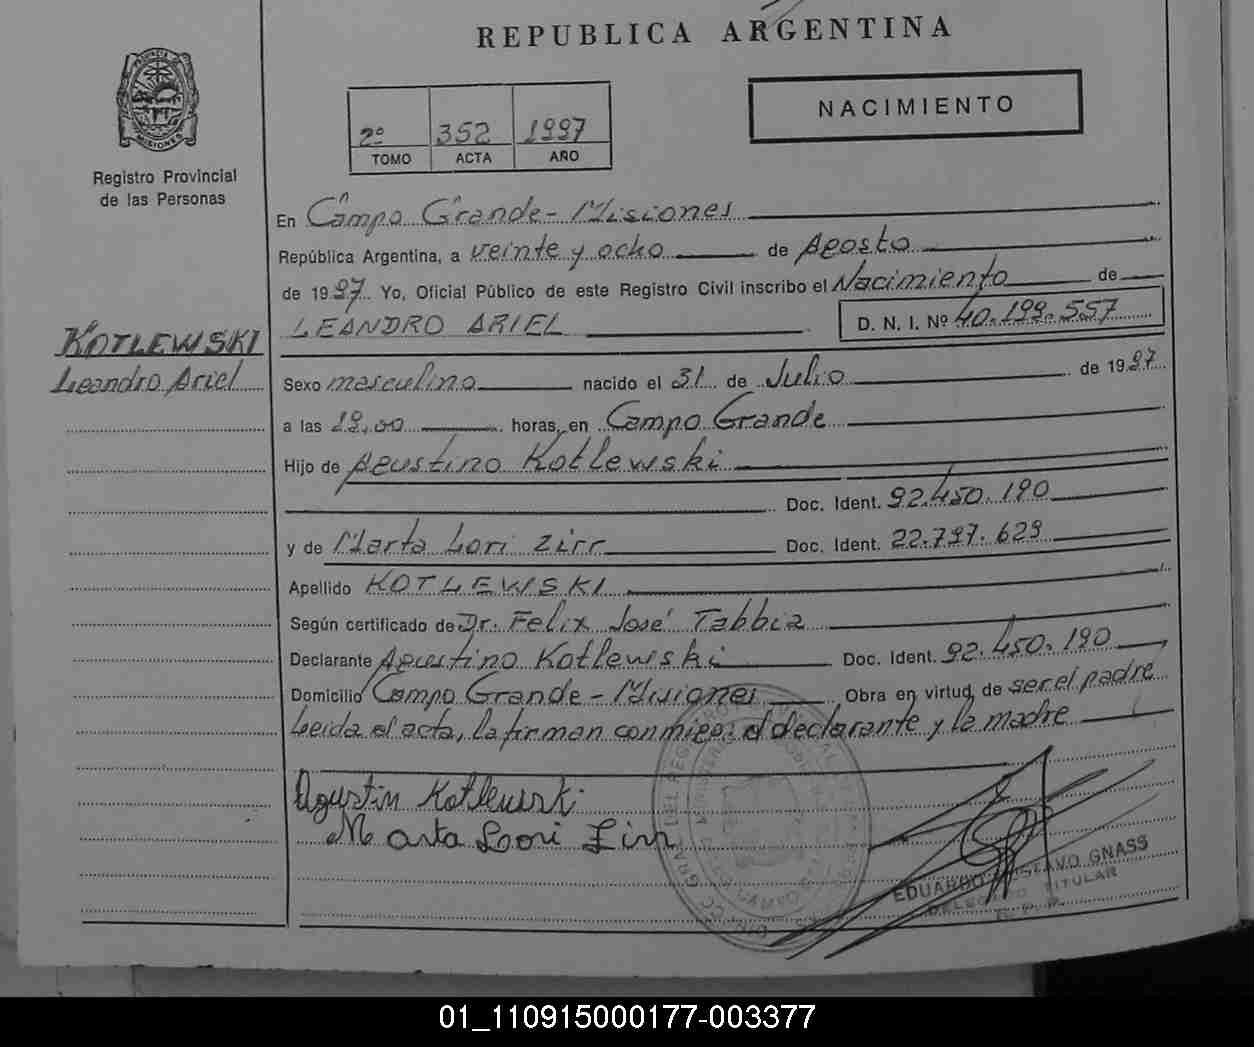 REPUBLICA ARGENTINA
PROVINCIA DE
MISIONES
Registro Provincial
de las Personas
2º 352 1997
TOMO ACTA AÑO
NACIMIENTO
En Campo Grande - Misiones
República Argentina, a veinte y ocho de Agosto
de 1997 Yo, Oficial Público de este Registro Civil inscribo el Nacimiento de
LEANDRO ARIEL D. N. I. Nº 40.199.557
KOTLEWSKI
Leandro Ariel
Sexo masculino nacido el 31 de Julio de 1997
a las 19,00 horas, en Campo Grande
Hijo de Agustino Kotlewski
Doc. Ident. 92.450.190
y de Marta Lori Zirr Doc. Ident. 22.797.629
Apellido KOTLEWSKI
Según certificado de Dr. Felix José Tabbia
Declarante Agustino Kotlewski Doc. Ident. 92.450.190
Domicilio Campo Grande - Misiones Obra en virtud de ser el padre
Leida el acta, la firman conmigo: el declarante y la madre
Agustin Kotlewski
Marta Lori Zirr
EDUARDO GUSTAVO GNASS
DELEGADO TITULAR
R. P. P.
01_110915000177-003377